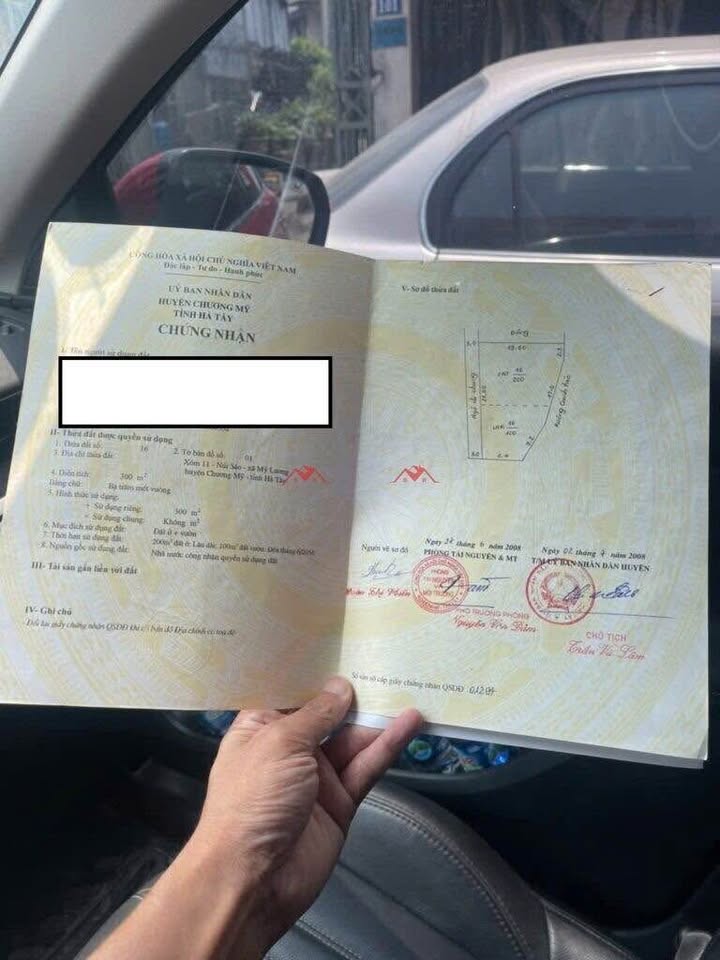 181
CỘNG HÒA XÃ HỘI CHỦ NGHĨA VIỆT NAM
Độc lập - Tự do - Hạnh phúc
UỶ BAN NHÂN DÂN
HUYỆN CHƯƠNG MỸ
TỈNH HÀ TÂY
CHỨNG NHẬN
I- Tên người sử dụng đất
II- Thửa đất được quyền sử dụng
1. Thửa đất số: 16 2. Tờ bản đồ số: 01
3. Địa chỉ thửa đất: Xóm 11 - Núi Sáo - xã Mỹ Lương
huyện Chương Mỹ - tỉnh Hà Tây
4. Diện tích: 300 m²
Bằng chữ: Ba trăm mét vuông
5. Hình thức sử dụng:
+ Sử dụng riêng: 300 m²
+ Sử dụng chung: Không m²
6. Mục đích sử dụng đất: Đất ở + vườn
7. Thời hạn sử dụng đất: 200m² đất ở: Lâu dài; 100m² đất vườn: Đến tháng
8. Nguồn gốc sử dụng đất: Nhà nước công nhận quyền sử dụng đất
III- Tài sản gắn liền với đất
IV- Ghi chú
- Đổi lại giấy chứng nhận QSDĐ khi có bản đồ Địa chính có toạ độ
V- Sơ đồ thửa đất
Đường
3,0
Ngõ đi chung
16
200
16
100
3,0
Ngày 26 tháng 6 năm 2008
Ngày 02 tháng 7 năm 2008
Người vẽ sơ đồ
PHÒNG TÀI NGUYÊN & MT
T/M UỶ BAN NHÂN DÂN HUYỆN
PHÒNG
TÀI NGUYÊN
MÔI TRƯỜNG
PHÓ TRƯỞNG PHÒNG
CHỦ TỊCH
Trần Vũ Lâm
Số vào sổ cấp giấy chứng nhận QSDĐ